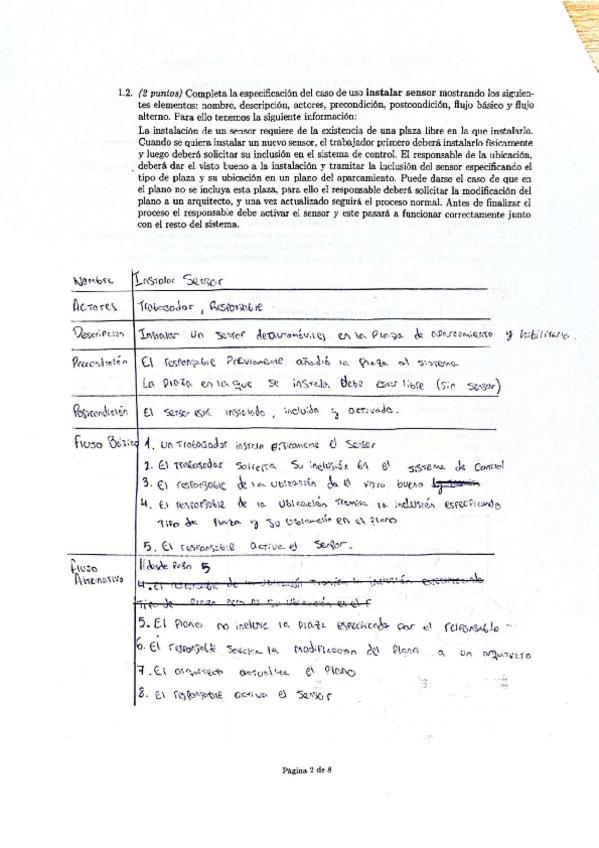 1.2. (2 puntos) Completa la especificación del caso de uso instalar sensor mostrando los siguien-
tes elementos: nombre, descripción, actores, precondición, postcondición, flujo básico y flujo
alterno. Para ello tenemos la siguiente información:
La instalación de un sensor requiere de la existencia de una plaza libre en la que instalarlo.
Cuando se quiera instalar un nuevo sensor, el trabajador primero deberá instalarlo físicamente
y luego deberá solicitar su inclusión en el sistema de control. El responsable de la ubicación,
deberá dar el visto bueno a la instalación y tramitar la inclusión del sensor especificando el
tipo de plaza y su ubicación en un plano del aparcamiento. Puede darse el caso de que en
el plano no se incluya esta plaza, para ello el responsable deberá solicitar la modificación del
plano a un arquitecto, y una vez actualizado seguirá el proceso normal. Antes de finalizar el
proceso el responsable debe activar el sensor y este pasará a funcionar correctamente junto
con el resto del sistema.
Nombre Instalar Sensor
Actores Trabajador, Responsable
Descripcion Instalar un sensor de automóviles en la plaza de aparcamiento y habilitarlo.
Precondición El responsable previamente añadió la plaza al sistema
La plaza en la que se instala debe estar libre (sin sensor)
Postcondición El sensor está instalado, incluido y activado.
Flujo Básico 1. Un trabajador instala físicamente el sensor
2. El trabajador solicita su inclusión en el sistema de control
3. El responsable de la ubicación da el visto bueno
4. El responsable de la ubicación tramita la inclusión especificando
tipo de plaza y su ubicación en el plano
5. El responsable activa el sensor.
Flujo Alternativo desde paso 5
4. El responsable de la ubicación tramita la inclusión especificando
tipo de plaza pero no su ubicación en el
5. El plano no incluye la plaza especificada por el responsable
6. El responsable solicita la modificación del plano a un arquitecto
7. El arquitecto actualiza el plano
8. El responsable activa el sensor
Página 2 de 8